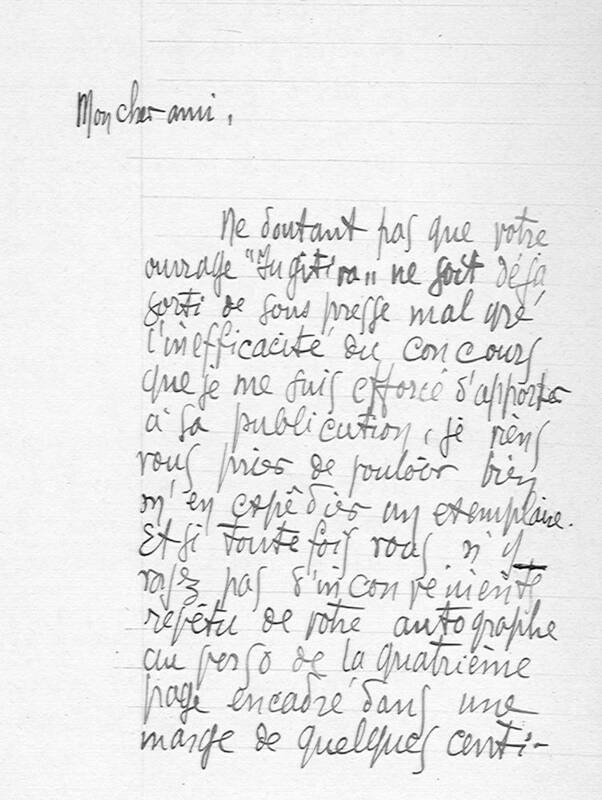 Mon cher ami,
Ne doutant pas que votre
ouvrage "Fugitiva" ne soit déjà
sorti de sous presse mal gré
l'inefficacité du concours
que je me suis efforcé d'apporter
à sa publication, je viens
vous prier de vouloir bien
m'en expédier un exemplaire.
Et si toute fois vous n'y
voyez pas d'inconvénients
revêtu de votre autographe
au verso de la quatrième
page encadré dans une
marge de quelques centi-